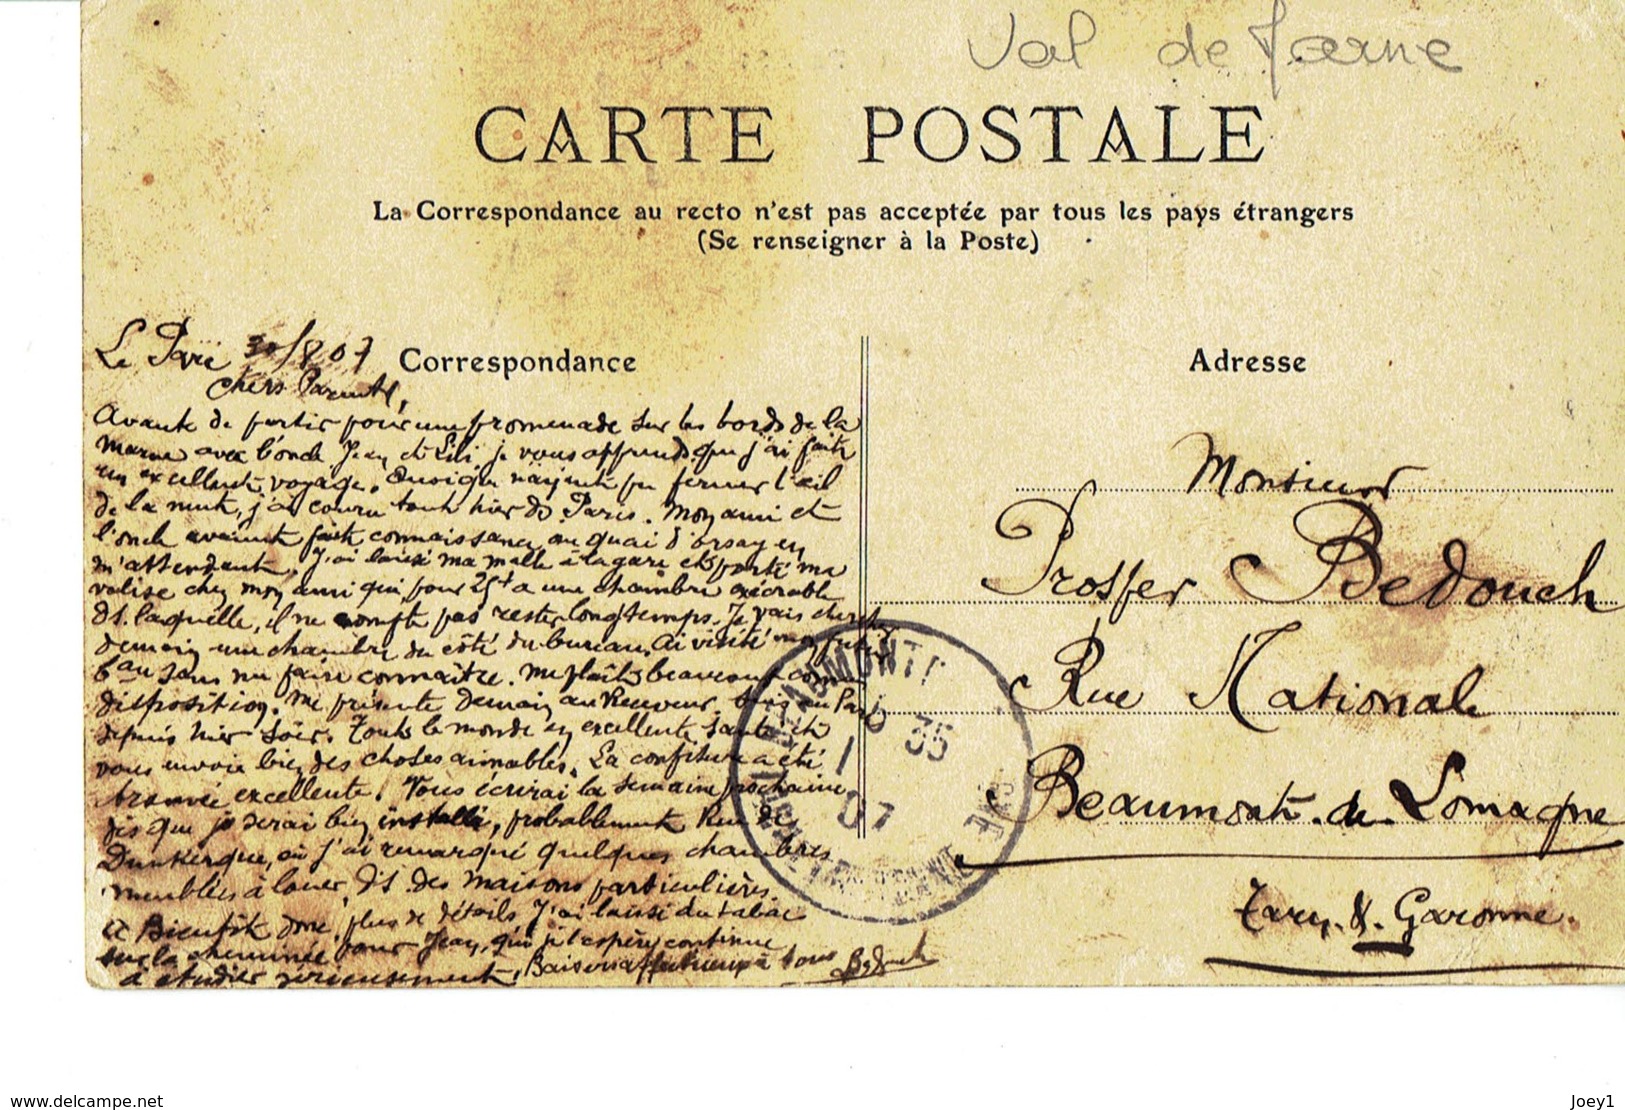 Val de Marne
CARTE POSTALE
La Correspondance au recto n'est pas acceptée par tous les pays étrangers
(Se renseigner à la Poste)
Correspondance
Adresse
Le Parc 30/8 07
Chers Parents,
Avant de partir pour une promenade sur les bords de la
Marne avec l'oncle Jean et Lili je vous apprends que j'ai fait
un excellent voyage. Quoique n'ayant pu fermer l'œil
de la nuit, j'ai couru tout hier ds Paris. Mon ami et
l'oncle avaient fait connaissance au quai d'orsay en
m'attendant. J'ai laissé ma malle à la gare et porté ma
valise chez mon ami qui pour 25f a une chambre exécrable
ds laquelle, il ne compte pas rester longtemps. Je vais chercher
demain une chambre du côté du bureau. Ai visité mon futur
bau sans me faire connaître. Me plaît beaucoup comme
disposition. Me présente demain au Receveur. Suis au Parc
depuis hier soir. Tout le monde en excellente santé et
vous envoie bien des choses aimables. La confiture a été
trouvée excellente. Vous écrirai la semaine prochaine
dès que je serai bien installé, probablement Rue de
Dunkerque, où j'ai remarqué quelques chambres
meublées à louer, ds des maisons particulières.
A Bientôt donc plus de détails J'ai laissé du tabac
sur la cheminée pour Jean, qui je l'espère continue
à étudier sérieusement. Baisers affectueux à tous Bedouch
Monsieur
Prosper Bedouch
Rue Nationale
Beaumont-de-Lomagne
Tarn-&-Garonne.
BEAUMONT
35
07
delcampe.net
Joey1